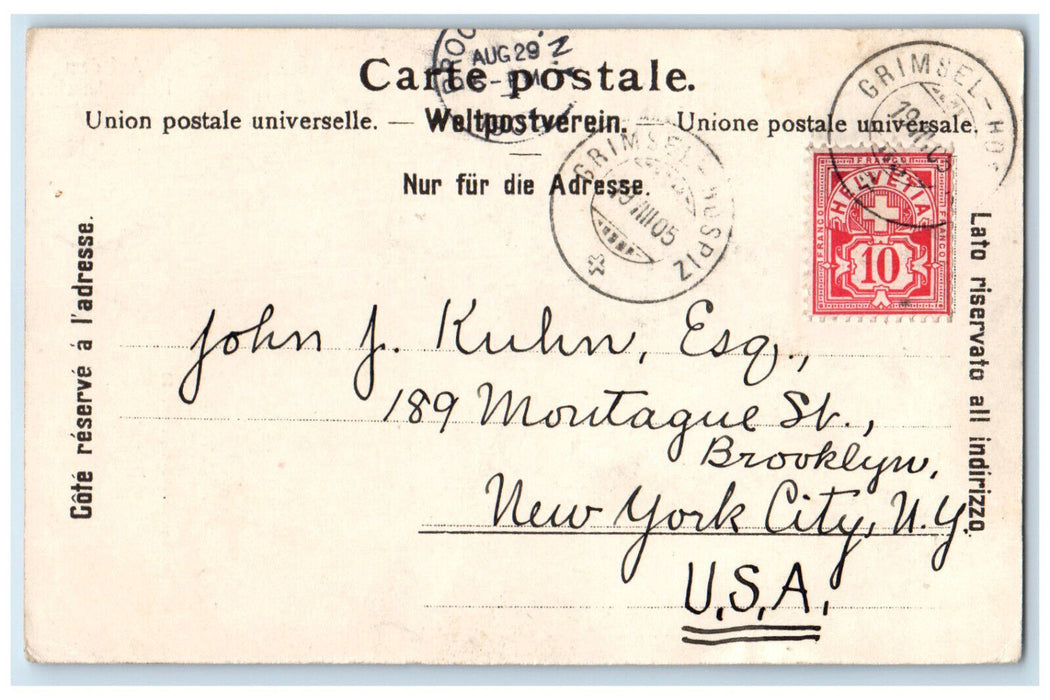 AUG 29
Carte postale.
Union postale universelle. — Weltpostverein. — Unione postale universale.
Nur für die Adresse.
GRIMSEL-HOSPIZ
19 VIII 05
GRIMSEL-HOS
FRANCO
HELVETIA
FRANCO
FRANCO
10
Côté réservé á l'adresse.
Lato riservato all indirizzo.
John J. Kuhn, Esq.,
189 Montague St.,
Brooklyn,
New York City, N.Y.
U.S.A.